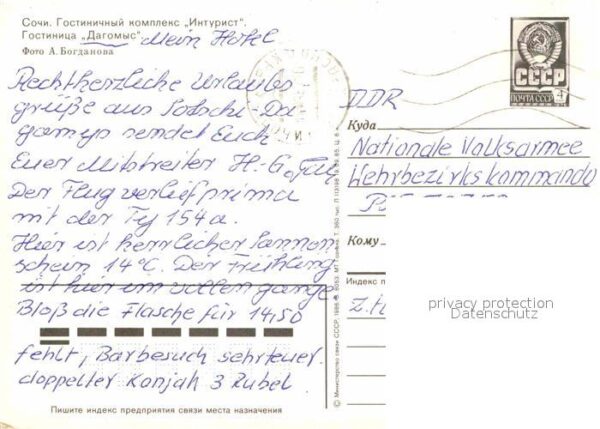 Сочи. Гостиничный комплекс „Интурист".
Гостиница „Дагомыс" Mein Hotel
Фото А. Богданова
Rechtherzliche Urlaubs
grüße aus Sotschi-Da
gomys sendet Euch
Euer Mitstreiter H.-G.
Der Flug verlief prima
mit der Ty 154a.
Hier ist herrlicher Sonnen
schein 14°C. Der Frühling
ist hier im vollen gange.
Bloß die Flasche für 14,50
fehlt, Barbesuch sehr teuer.
doppelter Konjak 3 Rubel
Пишите индекс предприятия связи места назначения
© Министерство связи СССР. 1985.
СССР
ПОЧТА СССР 4
DDR
Куда
Nationale Volksarmee
Wehrbezirkskommando
Кому
Индекс п
privacy protection
Datenschutz